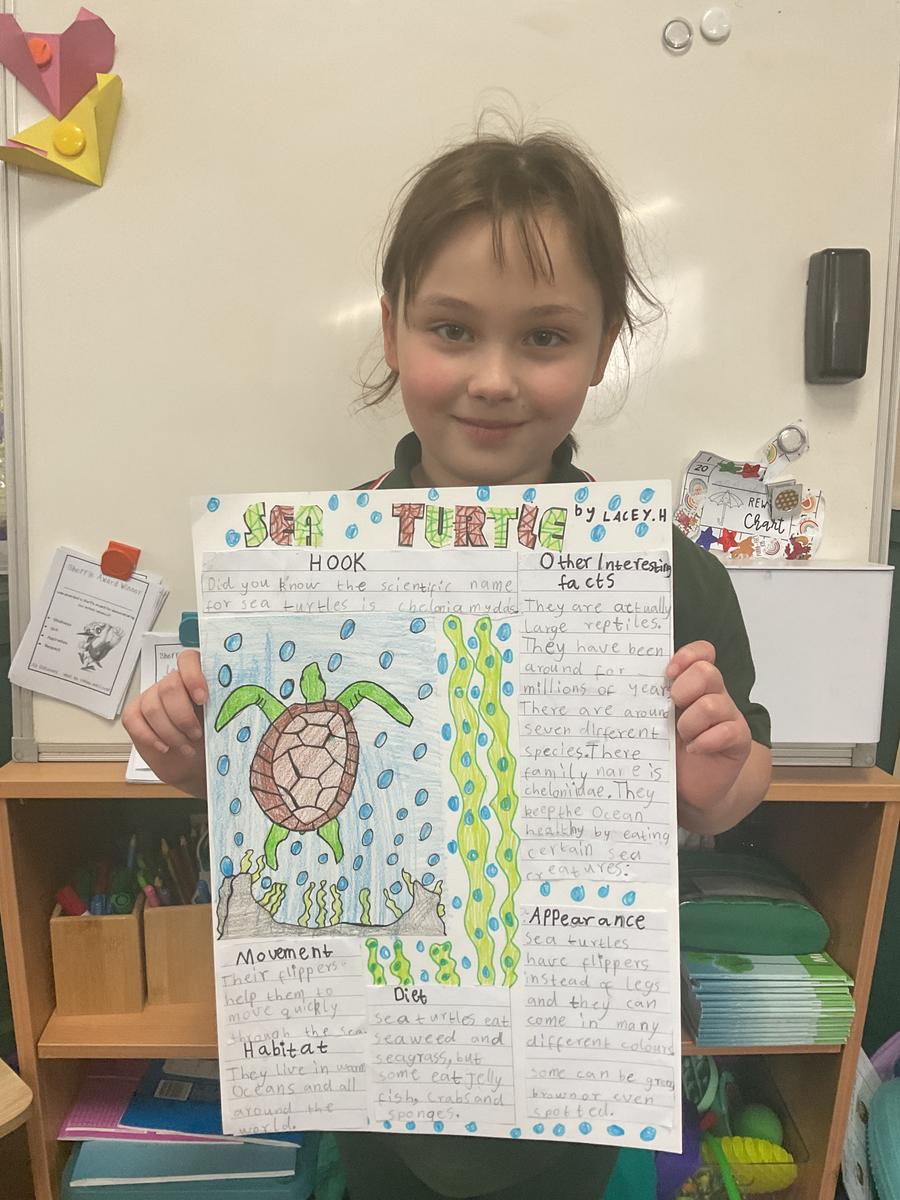 SEA TURTLE by LACEY.H
HOOK
Did you know the scientific name
for sea turtles is chelonia mydas.
Other Interesting
facts
They are actually
large reptiles.
They have been
around for
millions of years
There are around
seven different
species.There
family name is
cheloniidae.They
keep the Ocean
healthy by eating
certain sea
creatures.
Appearance
sea turtles
have flippers
instead of legs
and they can
come in many
different colours
some can be green
brown or even
spotted.
Movement
Their flippers
help them to
move quickly
through the sea.
Habitat
They live in warm
Oceans and all
around the
world.
Diet
sea turtles eat
seaweed and
seagrass, but
some eat jelly
fish, crabs and
sponges.
Sherrin Award Winner
20
REW
Chart